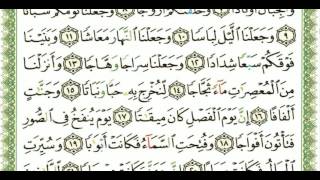 وَالْجِبَالَ أَوْتَادًا ٧ وَخَلَقْنَاكُمْ أَزْوَاجًا ٨ وَجَعَلْنَا نَوْمَكُمْ سُبَاتًا
٩ وَجَعَلْنَا اللَّيْلَ لِبَاسًا ١٠ وَجَعَلْنَا النَّهَارَ مَعَاشًا ١١ وَبَنَيْنَا
فَوْقَكُمْ سَبْعًا شِدَادًا ١٢ وَجَعَلْنَا سِرَاجًا وَهَّاجًا ١٣ وَأَنزَلْنَا
مِنَ الْمُعْصِرَاتِ مَاءً ثَجَّاجًا ١٤ لِّنُخْرِجَ بِهِ حَبًّا وَنَبَاتًا ١٥ وَجَنَّاتٍ
أَلْفَافًا ١٦ إِنَّ يَوْمَ الْفَصْلِ كَانَ مِيقَاتًا ١٧ يَوْمَ يُنفَخُ فِي الصُّورِ
فَتَأْتُونَ أَفْوَاجًا ١٨ وَفُتِحَتِ السَّمَاءُ فَكَانَتْ أَبْوَابًا ١٩ وَسُيِّرَتِ